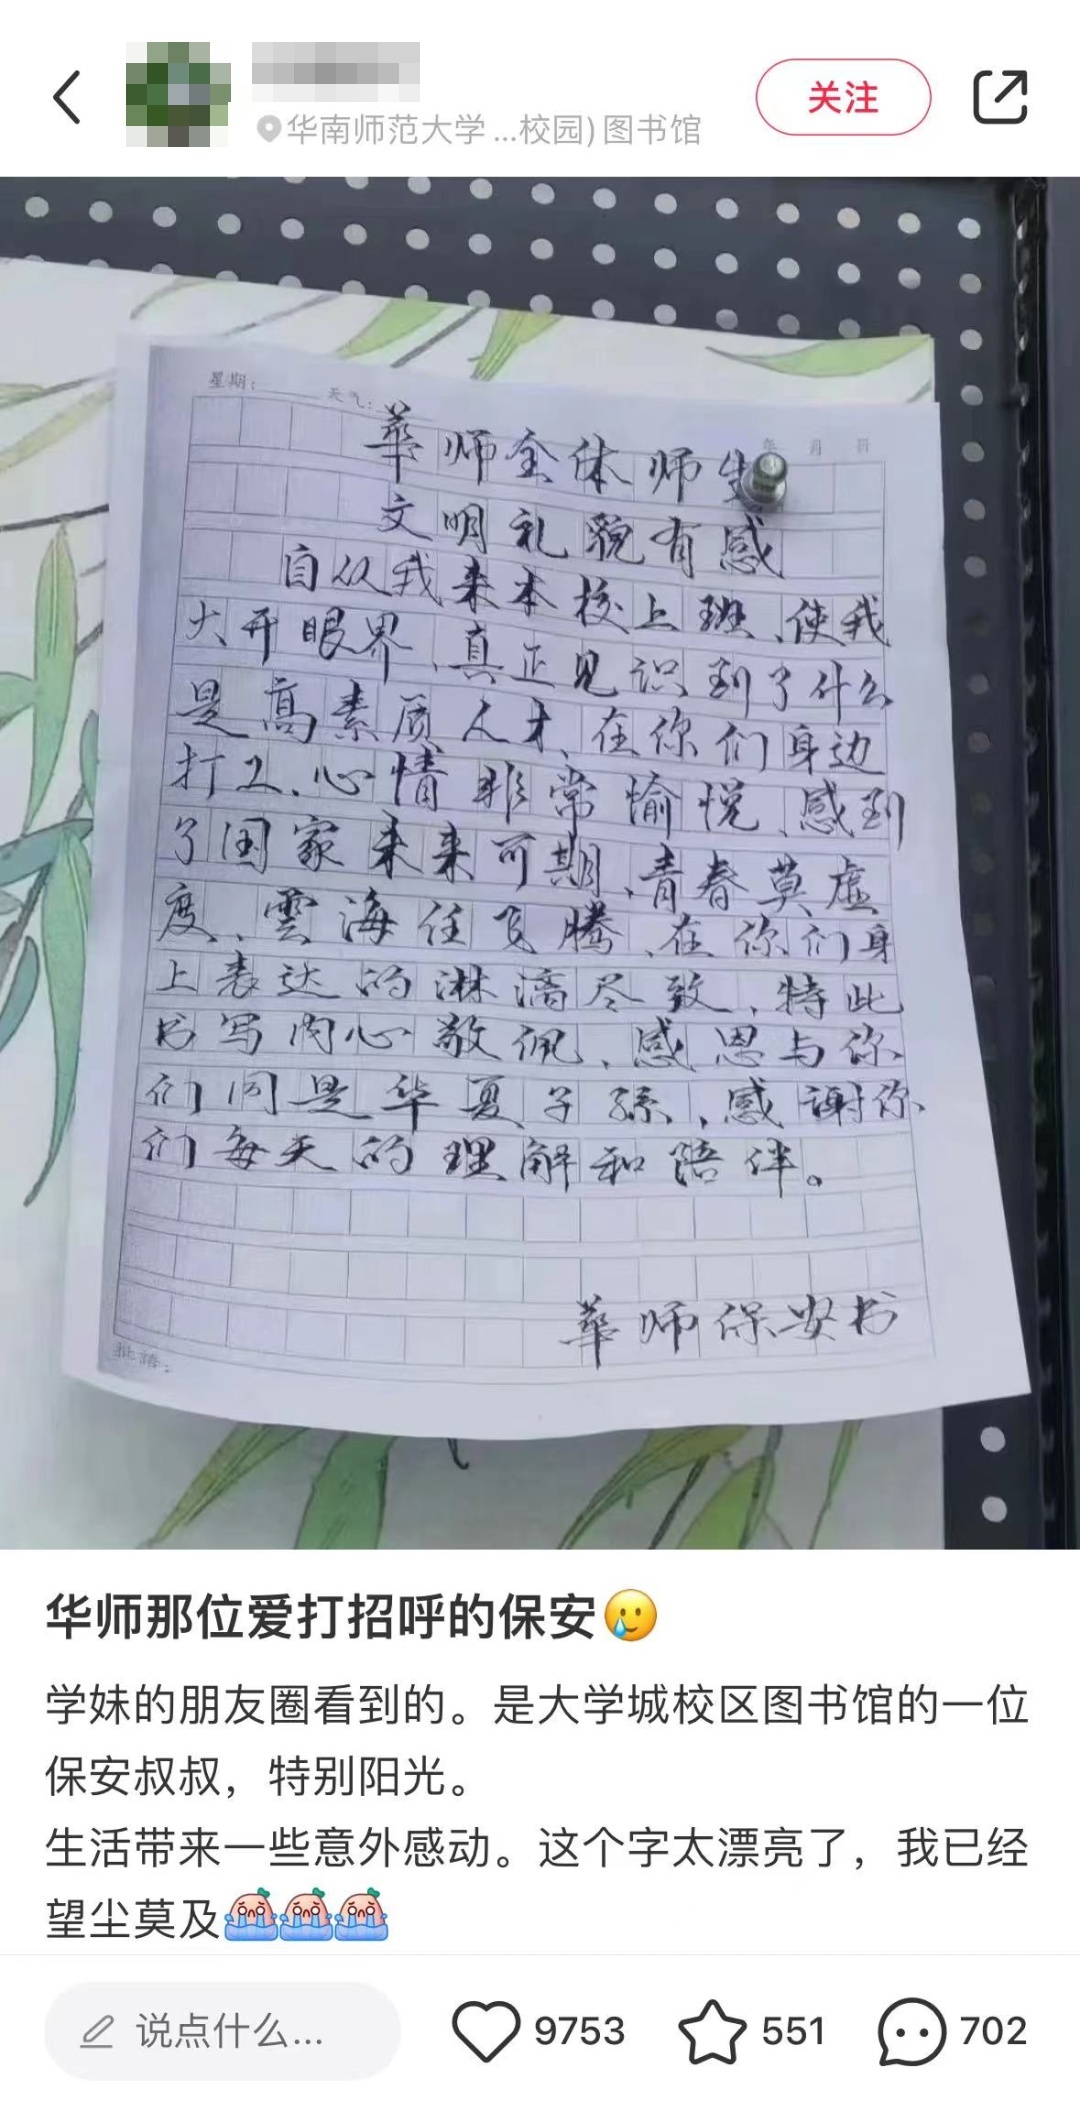 华南师范大学 ...校园) 图书馆
关注
星期: 天气:
年 月 日
華师全体师生
文明礼貌有感
自从我来本校上班、使我
大开眼界、真正见识到了什么
是高素质人才、在你们身边
打工、心情非常愉悦、感到
了国家未来可期、青春莫虚
度、雲海任飞腾、在你们身
上表达的淋漓尽致、特此
书写内心敬佩、感恩与你
们同是华夏子孫、感谢你
们每天的理解和陪伴。
華师保安书
批语:
华师那位爱打招呼的保安🥲
学妹的朋友圈看到的。是大学城校区图书馆的一位
保安叔叔，特别阳光。
生活带来一些意外感动。这个字太漂亮了，我已经
望尘莫及
说点什么...
9753
551
702